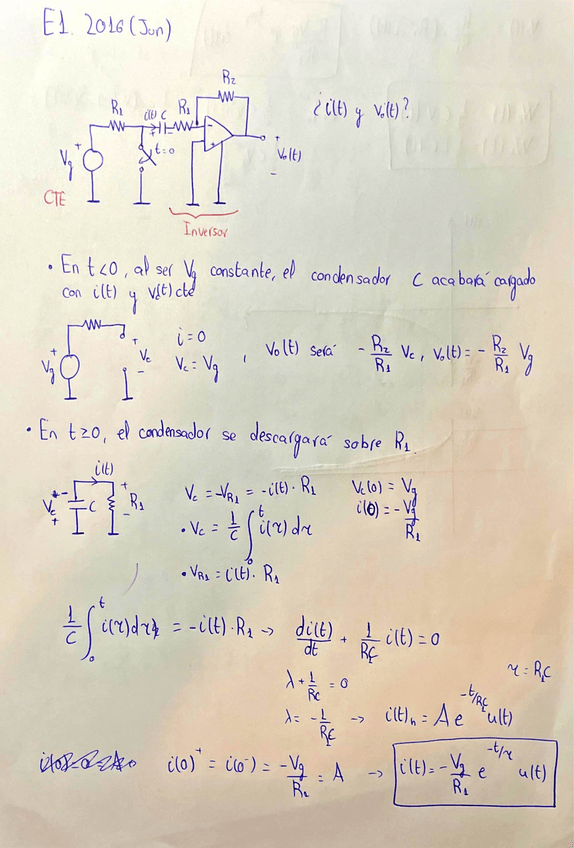 E1. 2016 (Jun)
R2
R1 i(t) C R1
¿i(t) y Vo(t)?
t=0
Vg + - + Vo(t) -
CTE
Inversor
• En t<0, al ser Vg constante, el condensador C acabará cargado
con i(t) y Vc(t) cte
Vg + + Vc - i=0
Vc = Vg , Vo(t) será - R2/R1 Vc , Vo(t) = - R2/R1 Vg
• En t≥0, el condensador se descargará sobre R1.
i(t)
Vc - + C + R1 -
Vc = -VR1 = -i(t) · R1 Vc(0) = Vg
• Vc = 1/C ∫₀ᵗ i(τ) dτ i(0) = - Vg/R1
• VR1 = i(t) · R1
1/C ∫₀ᵗ i(τ) dτ = -i(t) · R1 → di(t)/dt + 1/R1C i(t) = 0
λ + 1/R1C = 0 τ = R1C
λ = - 1/R1C → i(t)h = A e^(-t/R1C) u(t)
i(0)⁺ = i(0⁻) = -Vg/R2 = A → i(t) = - Vg/R1 e^(-t/τ) u(t)